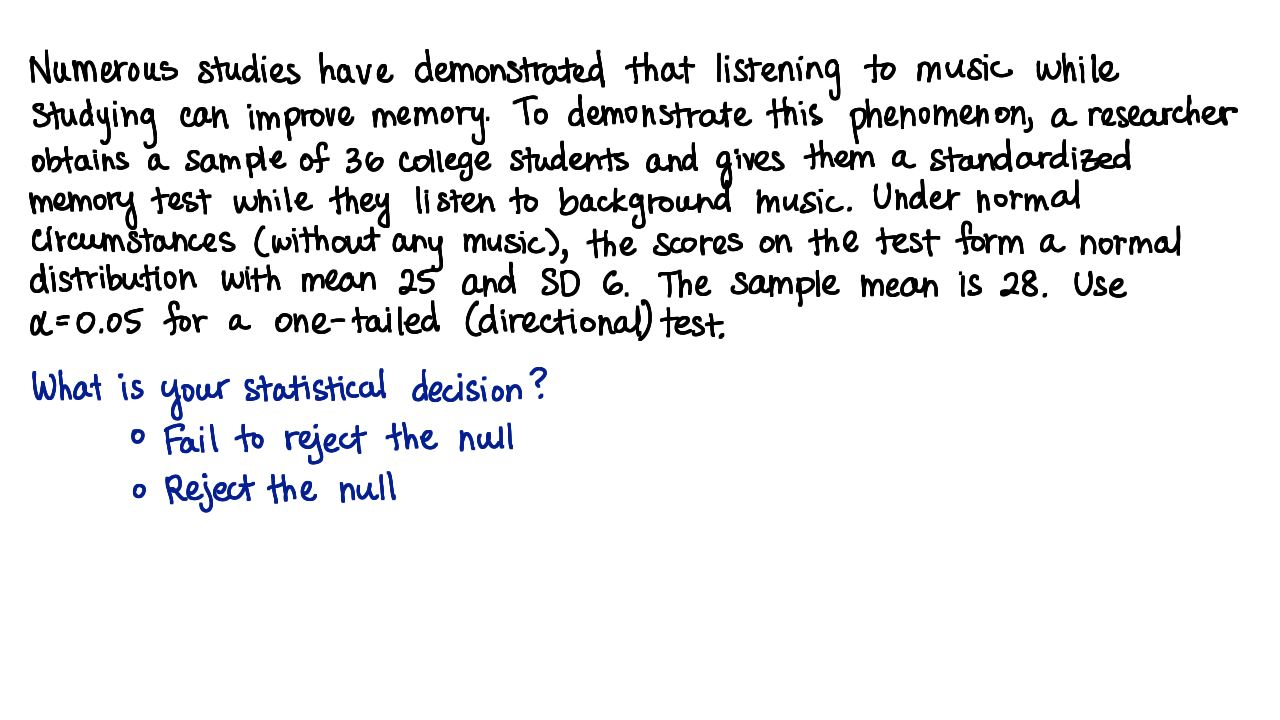 Numerous studies have demonstrated that listening to music while
studying can improve memory. To demonstrate this phenomenon, a researcher
obtains a sample of 36 college students and gives them a standardized
memory test while they listen to background music. Under normal
circumstances (without any music), the scores on the test form a normal
distribution with mean 25 and SD 6. The sample mean is 28. Use
α=0.05 for a one-tailed (directional) test.
What is your statistical decision?
○ Fail to reject the null
○ Reject the null